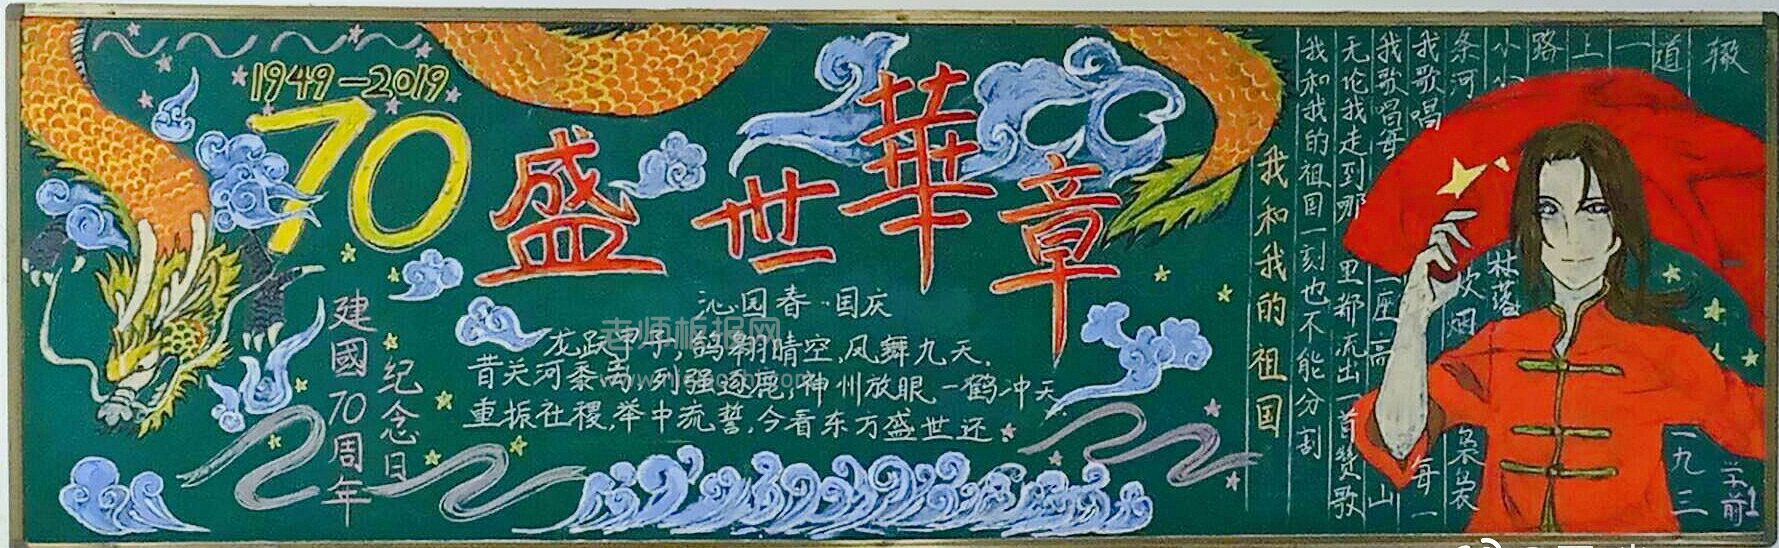 1949-2019
70
盛世華章
建國70周年
纪念日
沁园春·国庆
龙跃 鸽翔晴空,凤舞九天,
昔关河黍离,列强逐鹿,神州放眼,一鹤冲天,
重振社稷,举中流誓,今看东方盛世还。
老师板报网
我和我的祖国
我和我的祖国一刻也不能分割
无论我走到哪里都流出一首赞歌
我歌唱每一座高山
我歌唱每一
条河
炊烟
袅袅
小小
村落
路上一道辙
一九三
学前1